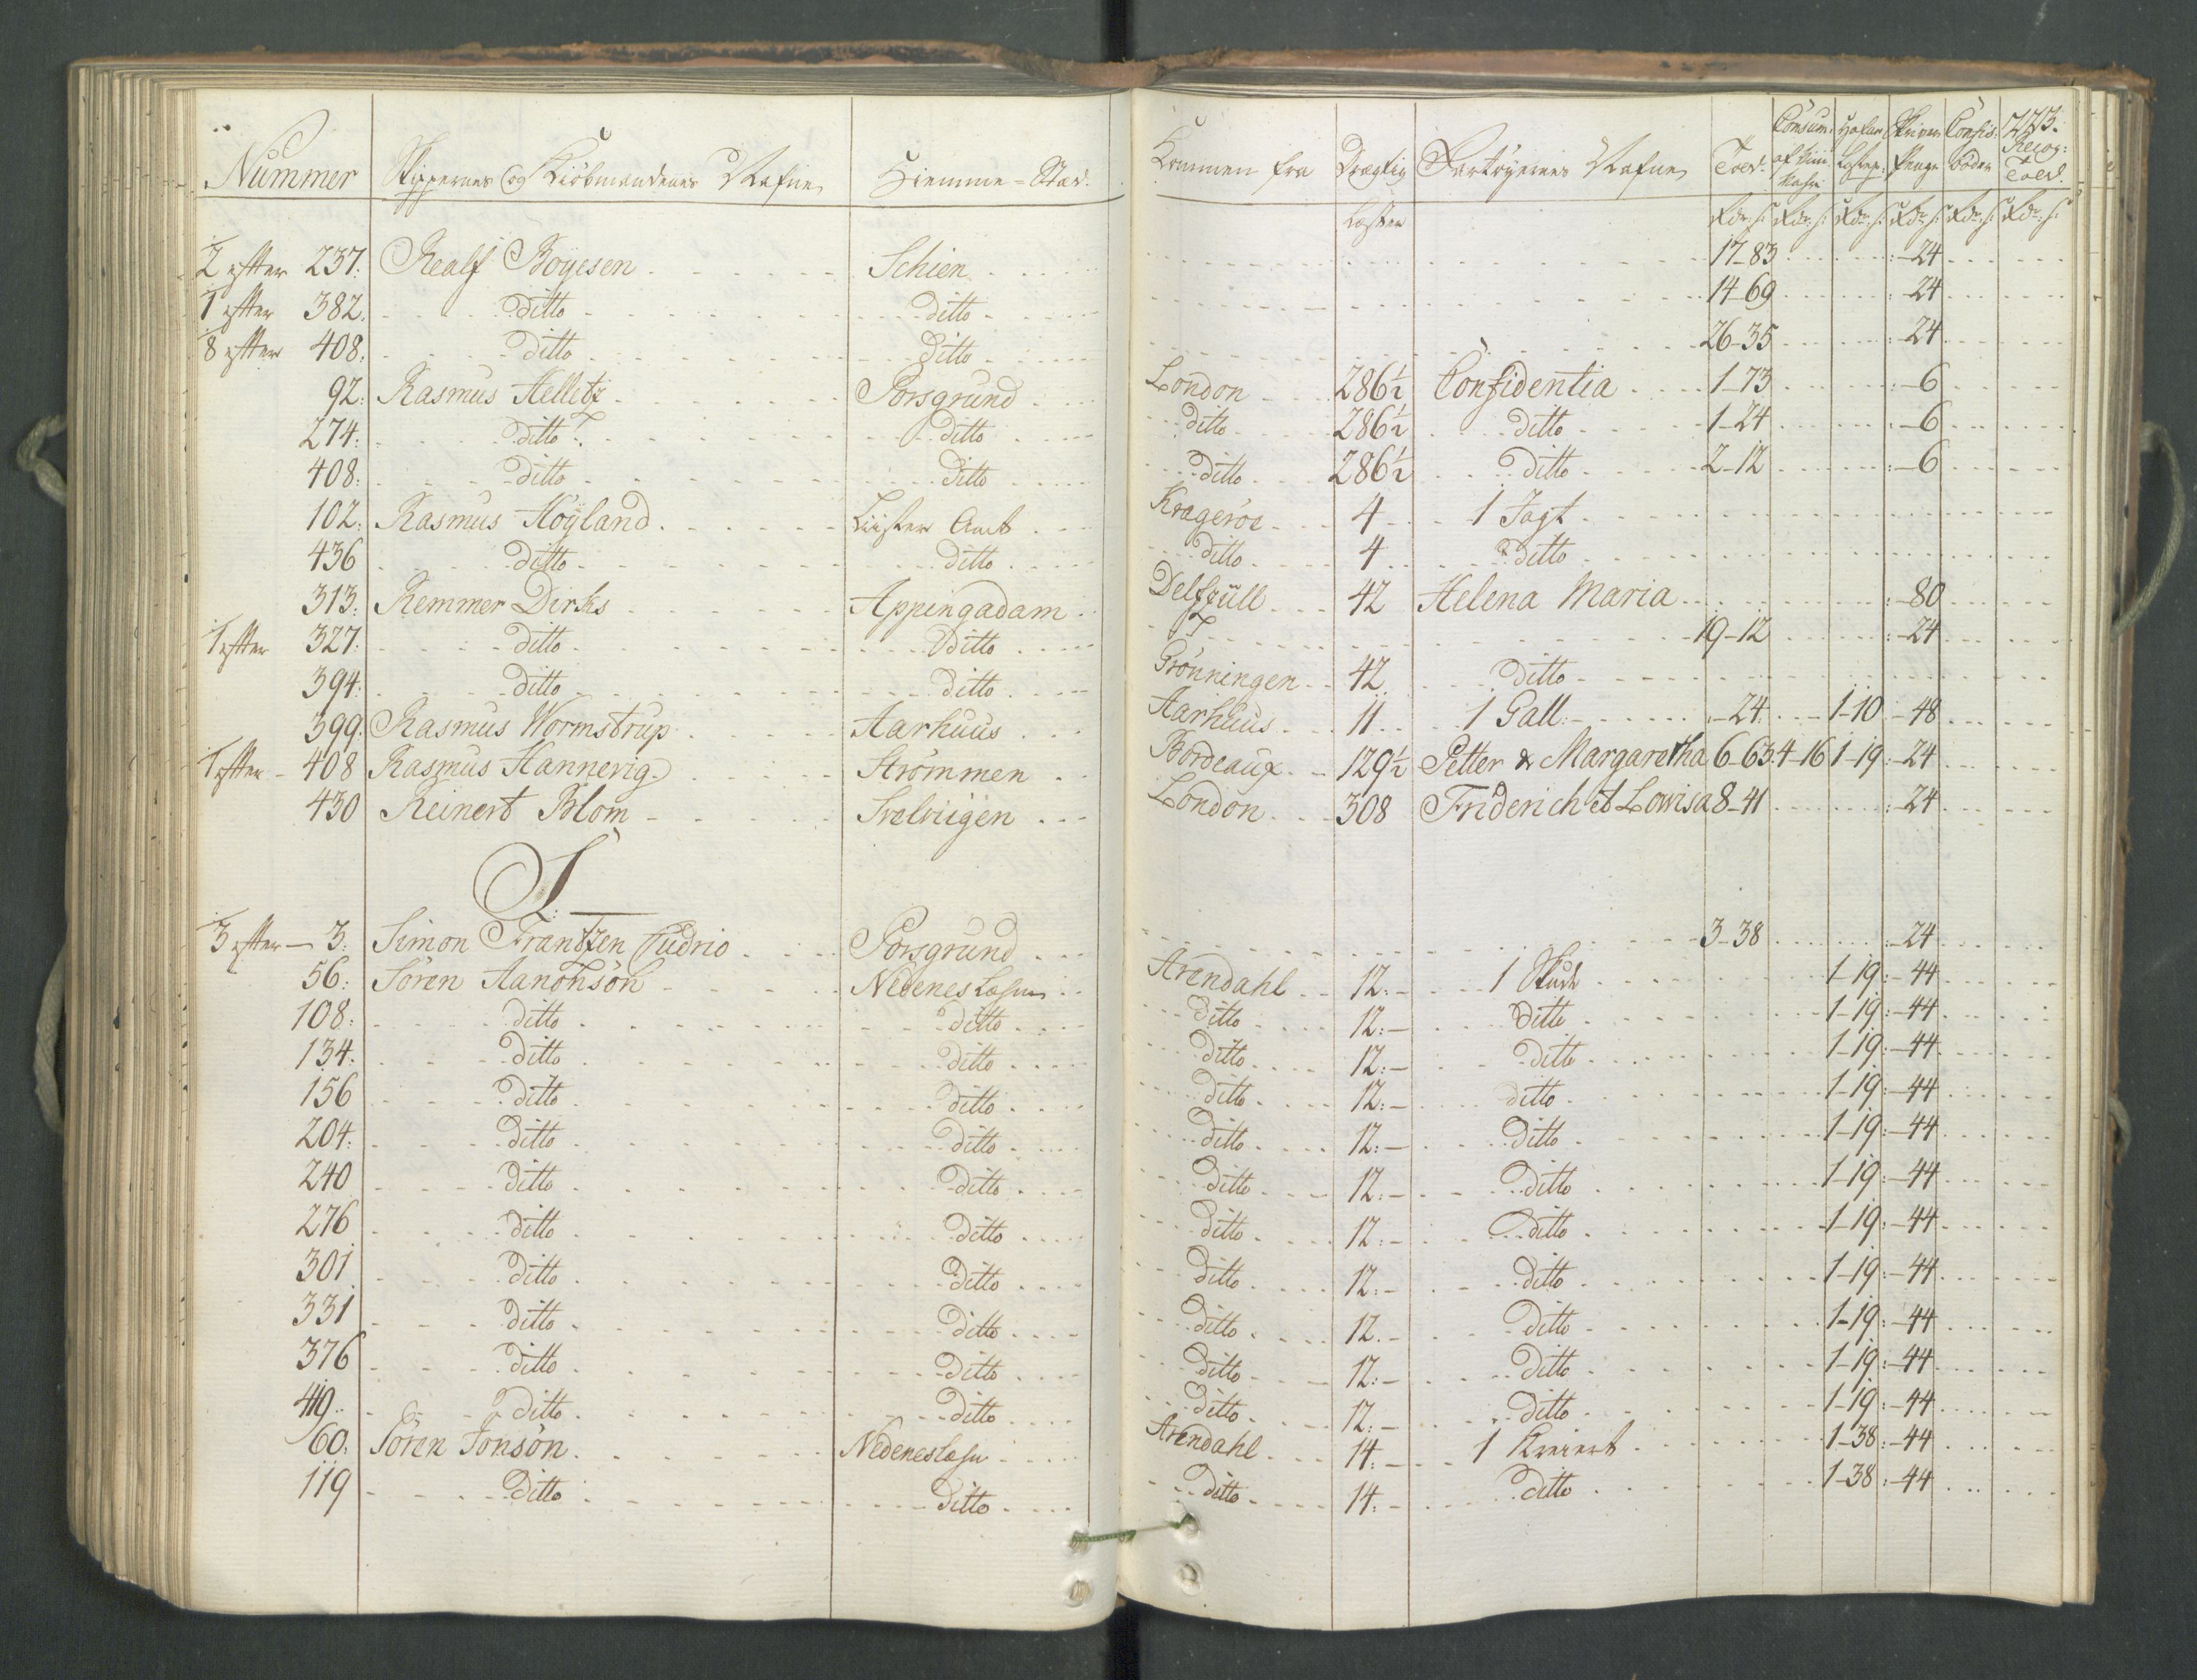 Nummer Skippernes og Kiöbmændenes Nafne Hiemme-Stæd. Kommen fra Drægtig Fartöyernes Nafne Told. Consum: Penge Confis: 223.
Læster bøder Recog: Told.
Rdr. s. Rdr. s. Rdr. s. Rdr. s. Rdr. s. Rdr. s.
2 efter 237: Realf Boyesen Schien 17-83 :-24
1 efter 382. ditto ditto 14-69 :-24
8 efter 408: ditto ditto 26-35 :-24
92: Rasmus Helletz Porsgrund London 286½ Confidentia 1-73 :-6
274: ditto ditto ditto 286½ ditto 1-24 :-6
408: ditto ditto ditto 286½ ditto 2-12 :-6
102: Rasmus Höyland Lister Amt Krageröe 4 1 Jagt
436 ditto ditto ditto 4 ditto
313: Remmer Dirks Appingadam Delfzüll 42 Helena Maria :-80
1 efter 327: ditto ditto 19-12 :-24
394: ditto ditto Grönningen 42 ditto
399: Rasmus Wormstrup Aarhuus Aarhuus 11 1 Gall: :-24. 1-10 -48
1 efter - 408 Rasmus Hannevig Strömmen Bordeaux 129½ Petter & Margaretha 6-63. 4-16 1-19 :-24
430 Reinert Blom Svelviigen London 308 Friderich et Lowisa 8-41 :-24
S:
3 efter - 3: Simon Frantzen Cudrio Porsgrund 3-38 :-24
56: Sören Aanonsön Nedenes Læhn Arendahl 12:- 1 Skude 1-19 :-44
108: ditto ditto ditto 12:- ditto 1-19 :-44
134: ditto ditto ditto 12:- ditto 1-19 :-44
156 ditto ditto ditto 12:- ditto 1-19 :-44
204: ditto ditto ditto 12:- ditto 1-19 :-44
240 ditto ditto ditto 12:- ditto 1-19 :-44
276 ditto ditto ditto 12:- ditto 1-19 :-44
301 ditto ditto ditto 12:- ditto 1-19 :-44
331 ditto ditto ditto 12.- ditto 1-19 :-44
376 ditto ditto ditto 12:- ditto 1-19 :-44
419.. ditto ditto ditto 12:- ditto 1-19 :-44
60: Sören Jonsön Nedeneslæhn Arendahl 14:- 1 Kreiert 1-38 :-44
119 ditto ditto ditto 14:- ditto 1-38 :-44